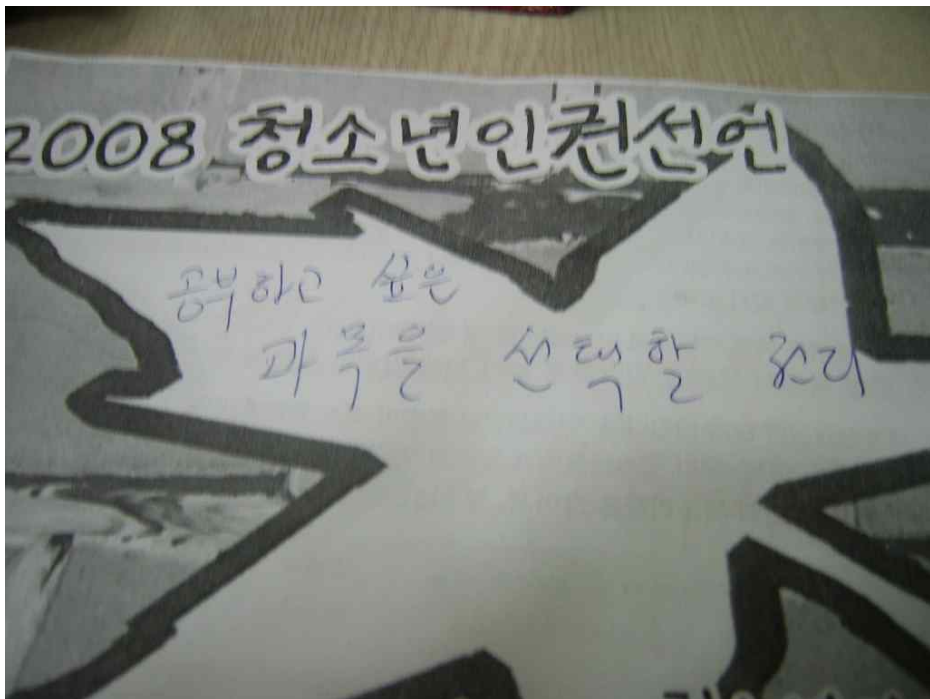 2008 청소년인권선언
공부하고 싶은
과목을 선택할 권리